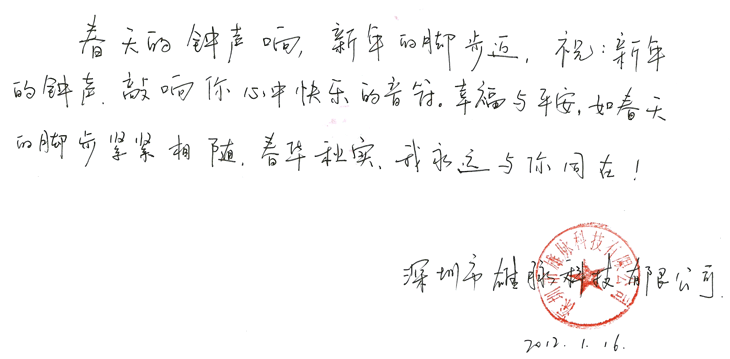 春天的钟声响，新年的脚步迈，祝：新年
的钟声，敲响你心中快乐的音符。幸福与平安，如春天
的脚步紧紧相随，春华秋实，我永远与你同在！
深圳市雄脉科技有限公司
深圳市雄脉科技有限公司.
2012.1.16.